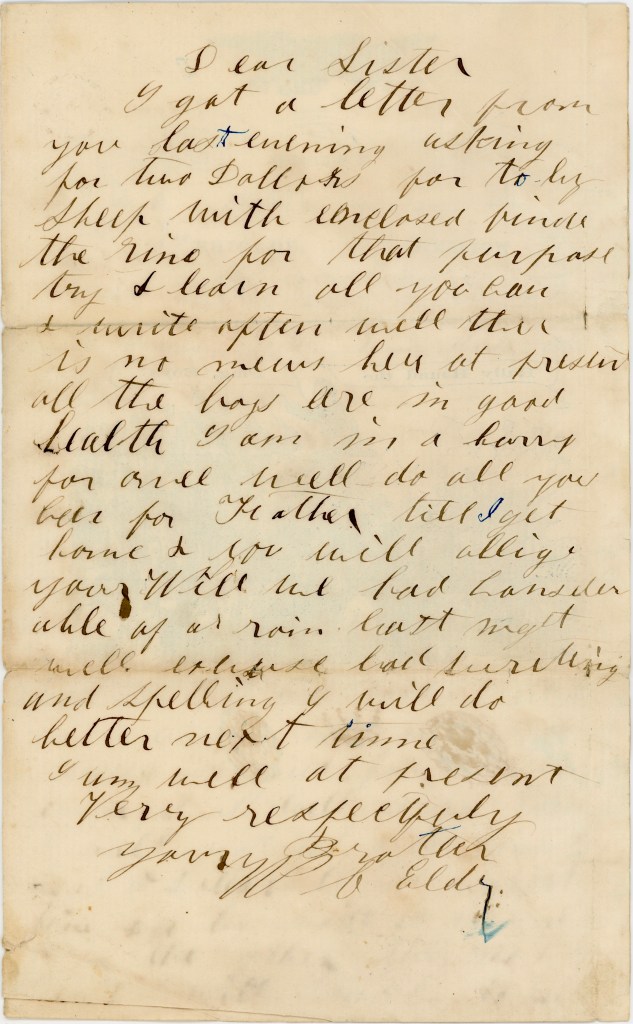 Dear Sister
I got a letter from
you last evening asking
for two Dollars for to by
Sheep with enclosed finde
the rino for that purpose
try & learn all you can
& write often well ther
is no news her at present
all the boys are in good
health I am in a hurry
for and well do all you
can for Father till I get
home & you will oblige
your Will we had consider
able of a rain last night
well excuse bad writting
and spelling I will do
better next time
I am well at present
Verry respectfuly
your Brother
W C Eldy